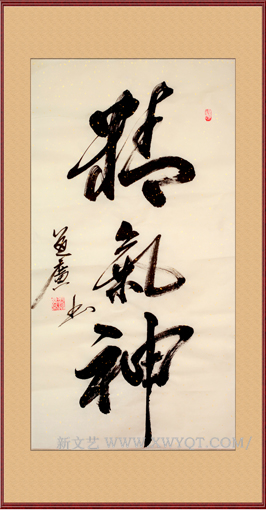 精
氣
神
道廣书
新文艺 WWW.XWYOT.COM/